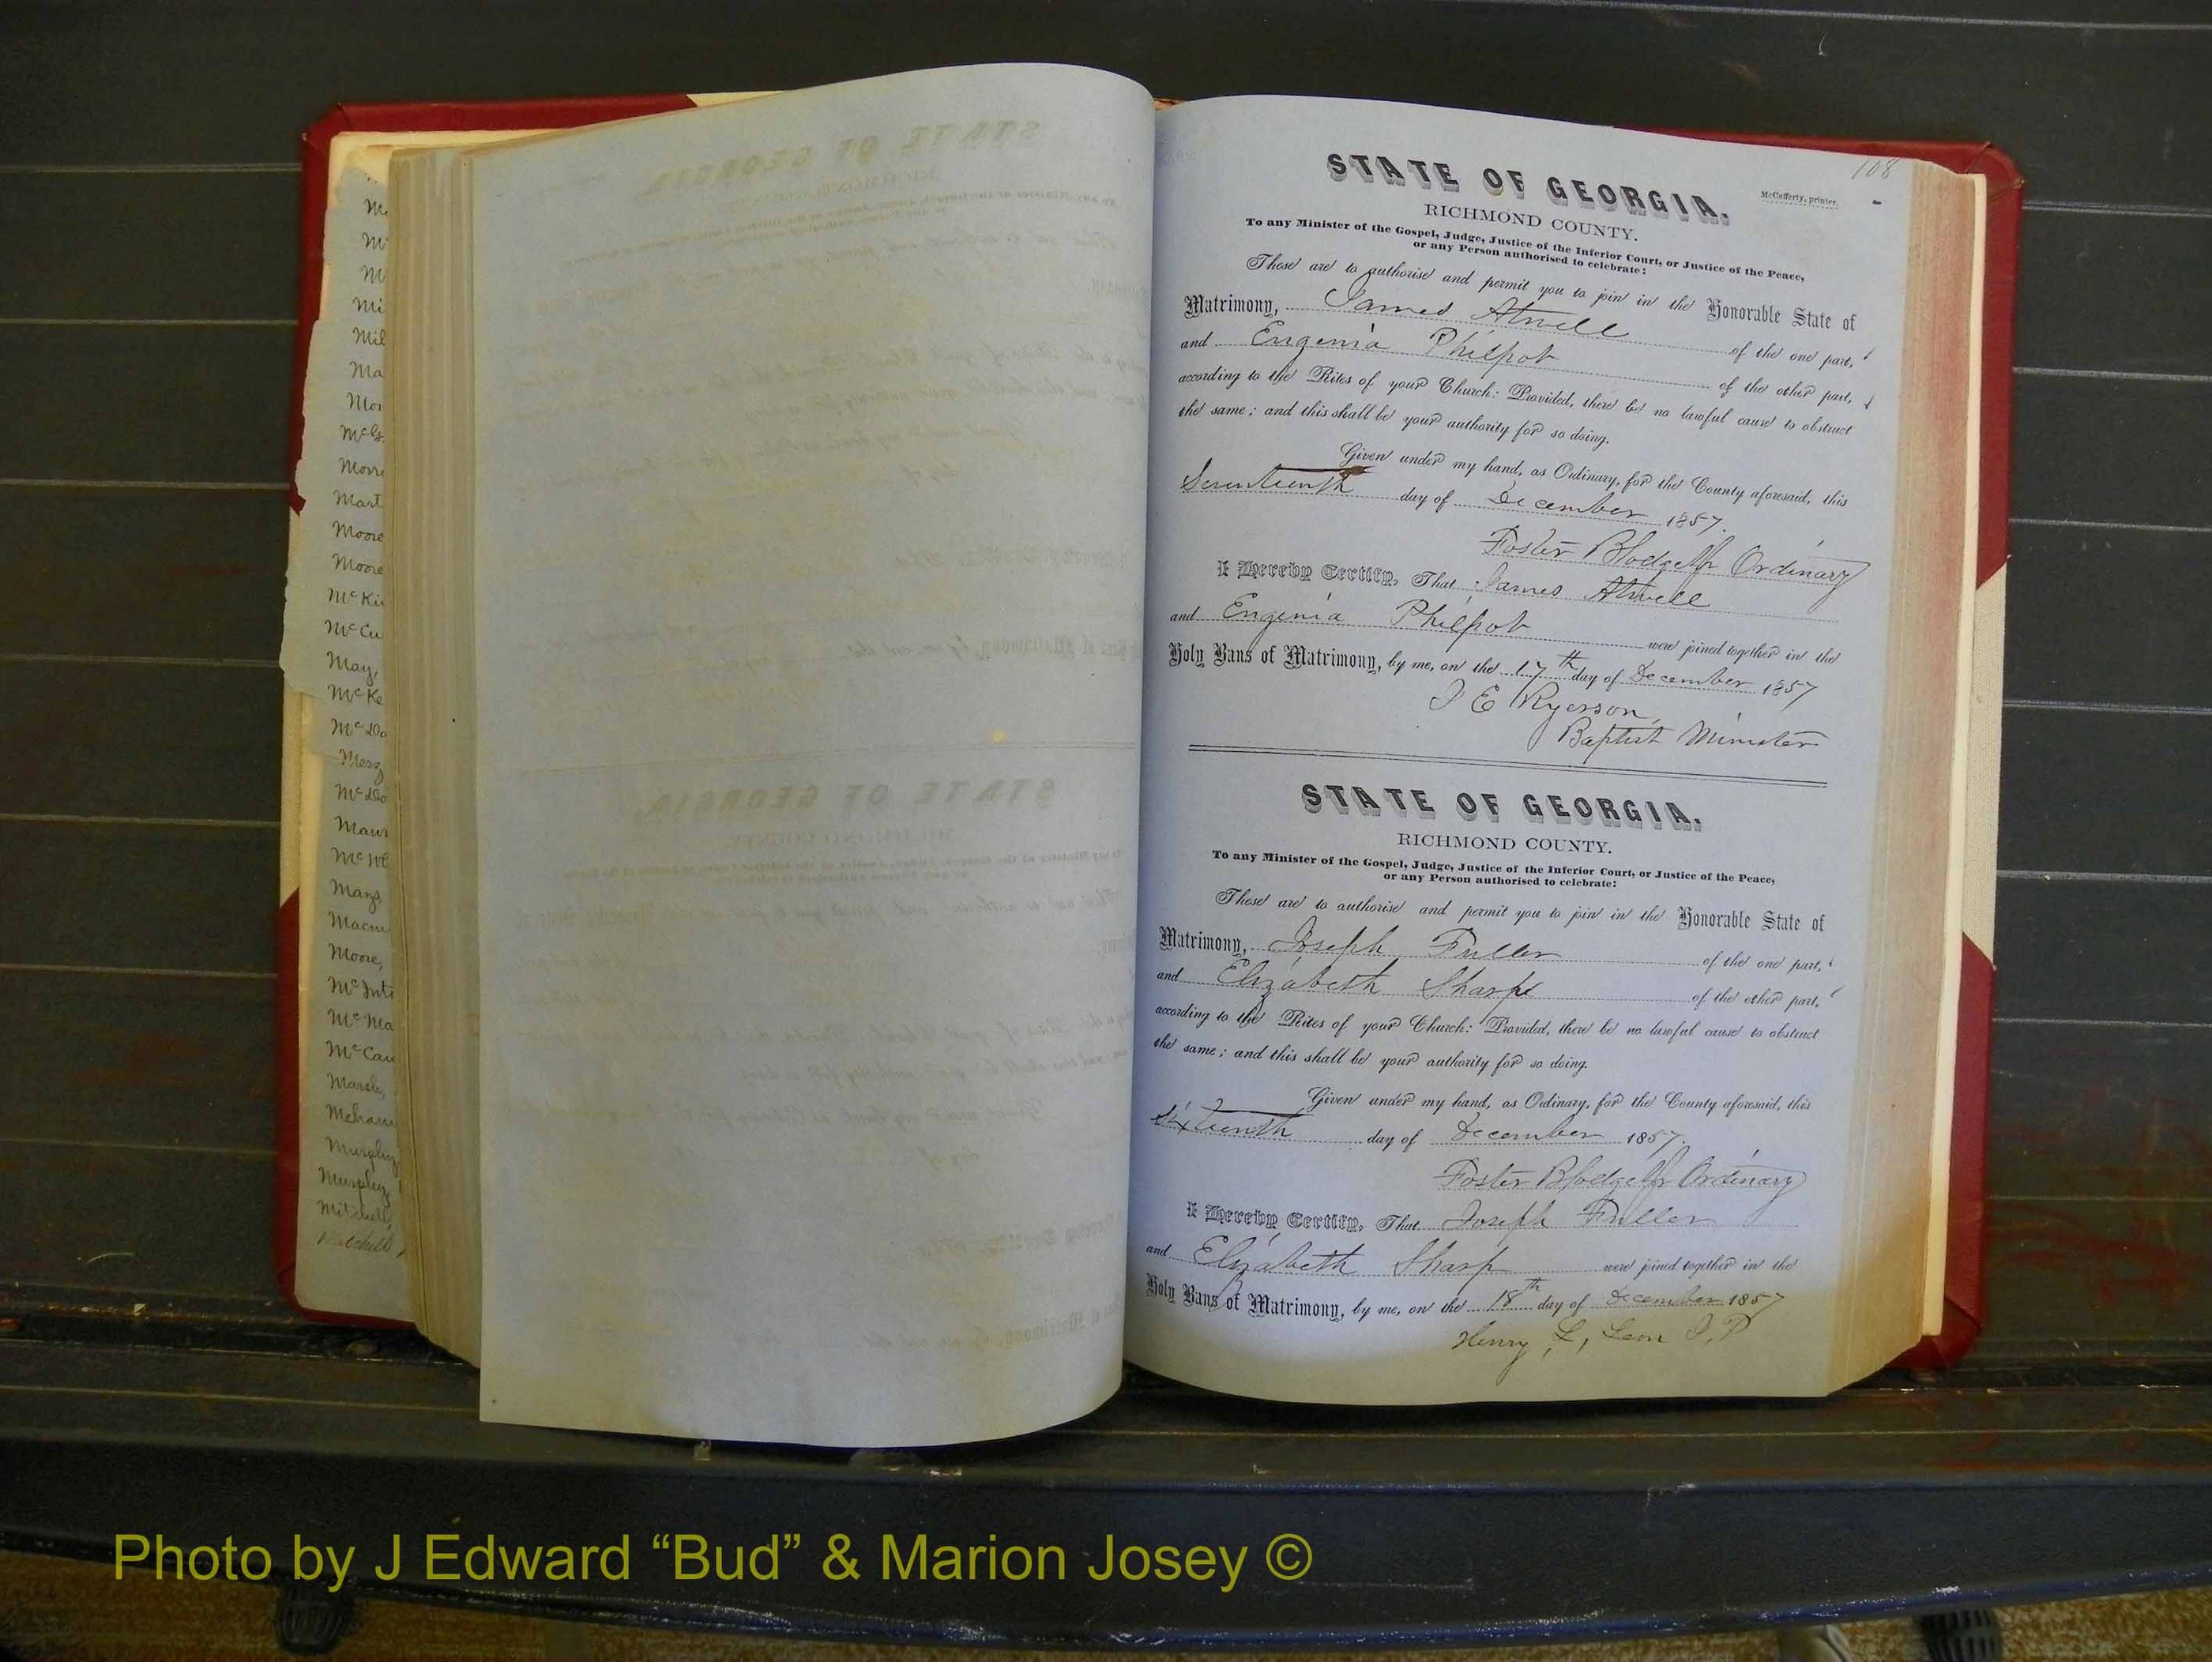 Mc
Mi
Mil
Ma
Mor
McG
Morri
Mart
Moore
Moore
McKi
McCu
May,
McKe
McDo
McDo
Maur
Mays
Macm
Moore,
McInt
McMa
McCan
Marsh,
Mehan
Murphy
Murphy,
Mitchell,
Mitchell,
108
McCafferty, printer.
STATE OF GEORGIA.
RICHMOND COUNTY.
To any Minister of the Gospel, Judge, Justice of the Inferior Court, or Justice of the Peace,
or any Person authorised to celebrate:
These are to authorise and permit you to join in the Honorable State of
Matrimony, James Atwell of the one part,
and Eugenia Philpot of the other part,
according to the Rites of your Church: Provided, there be no lawful cause to obstruct
the same; and this shall be your authority for so doing.
Given under my hand, as Ordinary, for the County aforesaid, this
Seventeenth day of December 1857.
Foster Blodget Jr Ordinary
I Hereby Certify, That James Atwell
and Eugenia Philpot were joined together in the
Holy Bans of Matrimony, by me, on the 17th day of December 1857
J E Ryerson,
Baptist Minister
STATE OF GEORGIA.
RICHMOND COUNTY.
To any Minister of the Gospel, Judge, Justice of the Inferior Court, or Justice of the Peace,
or any Person authorised to celebrate:
These are to authorise and permit you to join in the Honorable State of
Matrimony, Joseph Fuller of the one part,
and Elizabeth Sharpe of the other part,
according to the Rites of your Church: Provided, there be no lawful cause to obstruct
the same; and this shall be your authority for so doing.
Given under my hand, as Ordinary, for the County aforesaid, this
Sixteenth day of December 1857.
Foster Blodget Jr Ordinary
I Hereby Certify, That Joseph Fuller
and Elizabeth Sharp were joined together in the
Holy Bans of Matrimony, by me, on the 18th day of December 1857
Henry L, Leon J,P
Photo by J Edward “Bud” & Marion Josey ©